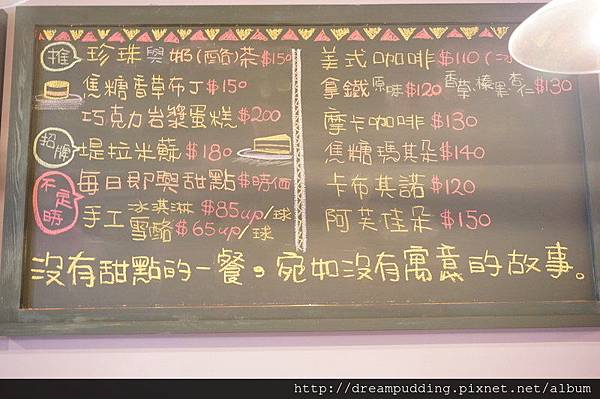 推 珍珠與奶(酪)茶 $150
焦糖香草布丁 $150
巧克力岩漿蛋糕 $200
招牌 堤拉米蘇 $180
不定時 每日即興甜點 $時価
手工 冰淇淋 $85up/球
雪酪 $65up/球
美式咖啡 $110
拿鐵 原味 $120 香草 榛果 杏仁 $130
摩卡咖啡 $130
焦糖瑪其朵 $140
卡布其諾 $120
阿芙佳朵 $150
沒有甜點的一餐，宛如沒有寓意的故事。
http://dreampudding.pixnet.net/album